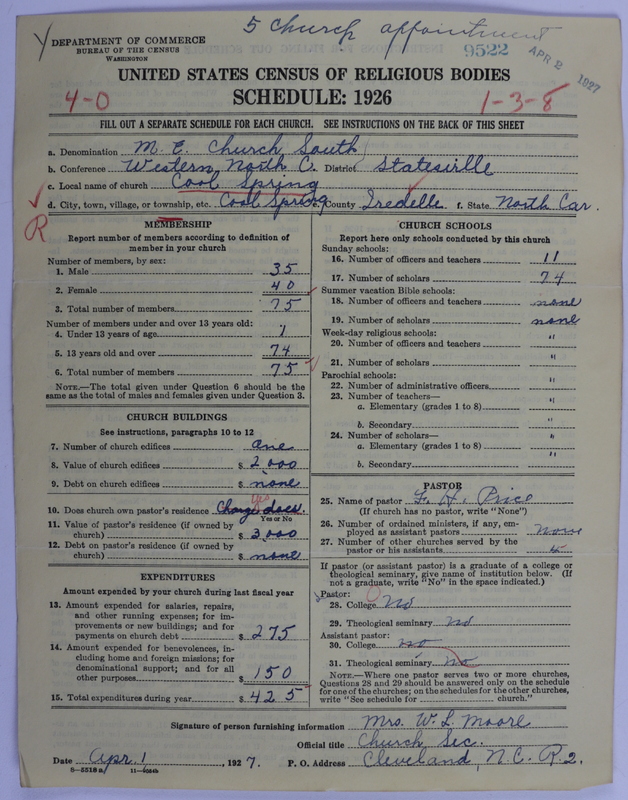 5 Church appointment
Y DEPARTMENT OF COMMERCE
BUREAU OF THE CENSUS
WASHINGTON
9522
APR 2 1927
UNITED STATES CENSUS OF RELIGIOUS BODIES
4-0
SCHEDULE: 1926
1-3-8
FILL OUT A SEPARATE SCHEDULE FOR EACH CHURCH. SEE INSTRUCTIONS ON THE BACK OF THIS SHEET
a. Denomination M. E. Church South
b. Conference Western North C. District Statesville
c. Local name of church Cool Spring
d. City, town, village, or township, etc. Cool Spring e. County Iredelle f. State North Car.
R
MEMBERSHIP
Report number of members according to definition of
member in your church
Number of members, by sex:
1. Male 35
2. Female 40
3. Total number of members 75
Number of members under and over 13 years old:
4. Under 13 years of age 1
5. 13 years old and over 74
6. Total number of members 75
NOTE.—The total given under Question 6 should be the
same as the total of males and females given under Question 3.
CHURCH BUILDINGS
See instructions, paragraphs 10 to 12
7. Number of church edifices one
8. Value of church edifices $ 2000
9. Debt on church edifices $ none
yes
10. Does church own pastor's residence Charge does
Yes or No
11. Value of pastor's residence (if owned by
church) $ 3,000
12. Debt on pastor's residence (if owned by
church) $ none
EXPENDITURES
Amount expended by your church during last fiscal year
13. Amount expended for salaries, repairs,
and other running expenses; for im-
provements or new buildings; and for
payments on church debt $ 275
14. Amount expended for benevolences, in-
cluding home and foreign missions; for
denominational support; and for all
other purposes $ 150
15. Total expenditures during year $ 425
CHURCH SCHOOLS
Report here only schools conducted by this church
Sunday schools:
16. Number of officers and teachers 11
17. Number of scholars 74
Summer vacation Bible schools:
18. Number of officers and teachers none
19. Number of scholars none
Week-day religious schools:
20. Number of officers and teachers "
21. Number of scholars "
Parochial schools:
22. Number of administrative officers "
23. Number of teachers—
a. Elementary (grades 1 to 8) "
b. Secondary "
24. Number of scholars—
a. Elementary (grades 1 to 8) "
b. Secondary "
PASTOR
25. Name of pastor F. H. Price
(If church has no pastor, write "None")
26. Number of ordained ministers, if any, em-
ployed as assistant pastors None
27. Number of other churches served by the
pastor or his assistants 4
If pastor (or assistant pastor) is a graduate of a college or
theological seminary, give name of institution below. (If
not a graduate, write "No" in the space indicated.)
Pastor:
28. College No
29. Theological seminary no
Assistant pastor:
30. College no
31. Theological seminary no
NOTE.—Where one pastor serves two or more churches,
Questions 28 and 29 should be answered only on the schedule
for one of the churches; on the schedules for the other churches,
write "See schedule for church."
Signature of person furnishing information Mrs. W. L. Moore
Official title Church Sec.
Date Apr. 1, 1927. P. O. Address Cleveland, N.C. R. 2.
8-5518a 11-9054b